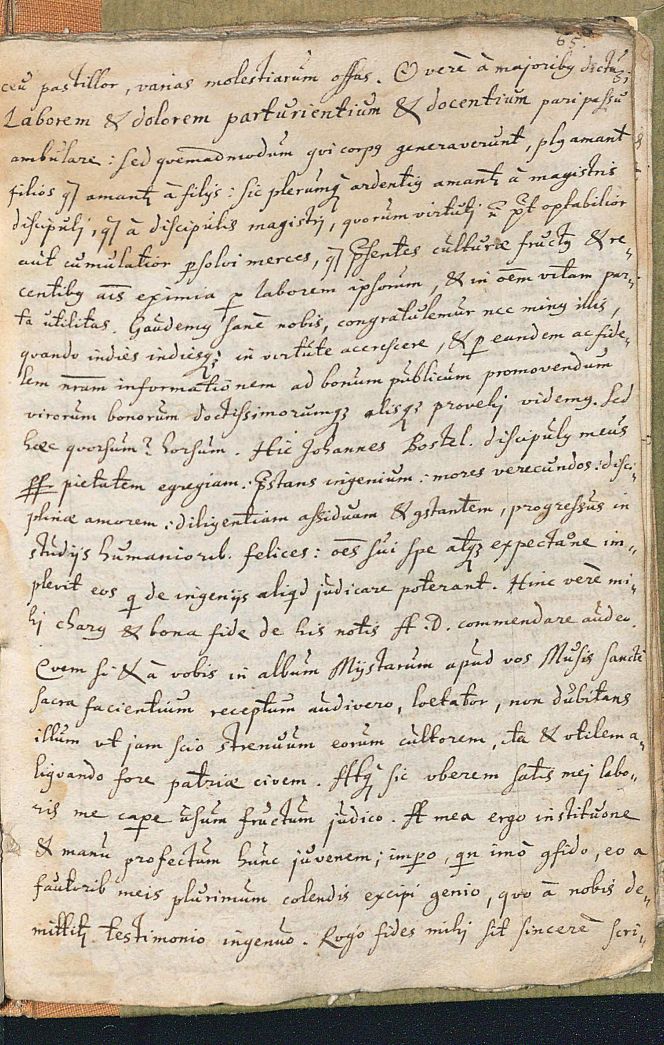 65.
ceu pastillor, varias molestiarum offas. O verè à majoribꝯ dictū,
Laborem & dolorem parturientium & docentium pari passu
ambulare: sed qvemadmodum qvi corpꝯ generaverunt, plꝯ amant
filios qꝫ amantꝫ à filijs: sic plerumqꝫ ardentiꝯ amantꝫ à magistris
discipulj, qꝫ à discipulis magistrj, qvorum virtutj optabilior
aut cumulatior psolvi merces, qꝫ psentes culturæ fructꝯ & re-
centibꝯ aīs eximia p laborem apsorum, & in oēm vitam par-
ta utilitas. Gaudemꝯ sanè nobis, congratulemur nec minꝯ illis,
qvando indies indiesqꝫ in virtute accrescere, & p eandem ac fide-
lem nram informationem ad bonum publicum promovendum
virorum bonorum doctissimorumqꝫ alisqꝫ provehj videmꝯ. Sed
hæc qvorsum? horsum. Hic Johannes Bostel. discipulꝯ meus
pp pietatem egregiam: pstans ingenium: mores verecundos: disci-
plinæ amorem: diligentiam assiduam & ꝯstantem, progressus in
studijs humaniorib. felices: oēs sui spe atqꝫ expectaōne im-
plevit eos q de ingenijs aliqd judicare poterant. Hinc verè mi-
hj charꝯ & bona fide de his notis A. D. commendare audeo.
Qvem si & à vobis in album Mystarum apud vos Musis sanctè
sacra facientium receptum audivero, loetabor, non dubitans
illum ut jam scio strenuum eorum cultorem, ita & utilem a-
liqvando fore patriæ civem. Atqꝫ sic uberem satis mej labo-
ris me cape usum fructum judico. A mea ergo institu̅one
& manu profectum hunc juvenem; impo, qn imò ꝯfido, eo a
fautorib meis plurimum colendis excipi genio, qvo à nobis de-
mittitꝫ testimonio ingenuo. Rogo fides mihj sit sincerè scri-